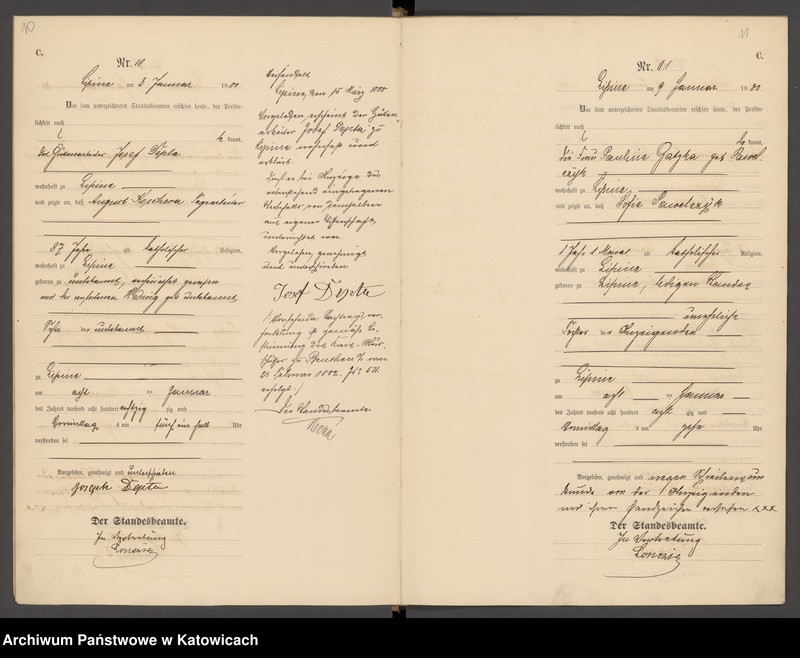 10
C.
Nr. 10
Lipine am 8 Januar 1880
Vor dem unterzeichneten Standesbeamten erschien heute, der Persön-
lichkeit nach
kannt,
der Hüttenarbeiter Josef Depta
wohnhaft zu Lipine
und zeigte an, daß August Tagearbeiter
87 Jahre alt katholischer Religion,
wohnhaft zu Lipine
geboren zu unbekannt, verheirathet gewesen
mit der verstorbenen Hedwig geb. unbekannt
Sohn des unbekannt
zu Lipine
am acht ten Januar
des Jahres tausend acht hundert achtzig zig und
Vormittag um fünf ein halb Uhr
verstorben sei
Vorgelesen, genehmigt und unterschrieben
Joseph Depta
Der Standesbeamte.
In Vertretung
Verhandelt
Lipine, den 15 März 1880
Vorgeladen erscheint der Hütten-
arbeiter Josef Depta zu
Lipine wohnhaft und
erklärt:
Daß er bei Anzeige des
nebenstehend eingetragenen
Sterbefalls von demselben
aus eigener Wissenschaft
unterrichtet war.
Vorgelesen, genehmigt
und unterschrieben
Josef Depta
zu Beuthen O/S vom
erfolgt.)
Der Standesbeamte
11
C.
Nr. 11
Lipine am 9 Januar 1880
Vor dem unterzeichneten Standesbeamten erschien heute, der Persön-
lichkeit nach
kannt,
die Frau Pauline Gatzka geb. Pawel-
czyk
wohnhaft zu Lipine
und zeigte an, daß Sofie Pawelczyk
1 Jahr 1 Monat alt katholischer Religion,
wohnhaft zu Lipine
geboren zu Lipine, ledigen Standes
uneheliche
Tochter der Anzeigenden
zu Lipine
am acht ten Januar
des Jahres tausend acht hundert acht zig und
Vormittag um zehn Uhr
verstorben sei
Vorgelesen, genehmigt und wegen Schreibensun-
kunde von der Anzeigenden
mit ihrem Handzeichen versehen xxx
Der Standesbeamte.
In Vertretung
Archiwum Państwowe w Katowicach